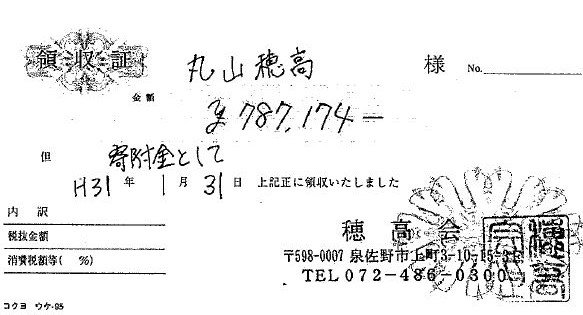 領収証 丸山穂高 様 No.
金額 ¥787,174—
但 寄附金として
H31年1月31日 上記正に領収いたしました
内訳
税抜金額
消費税額等( %)
穂高会
〒598-0007 泉佐野市上町3-10-15-3F
TEL 072-486-0300
コクヨ ウケ-95